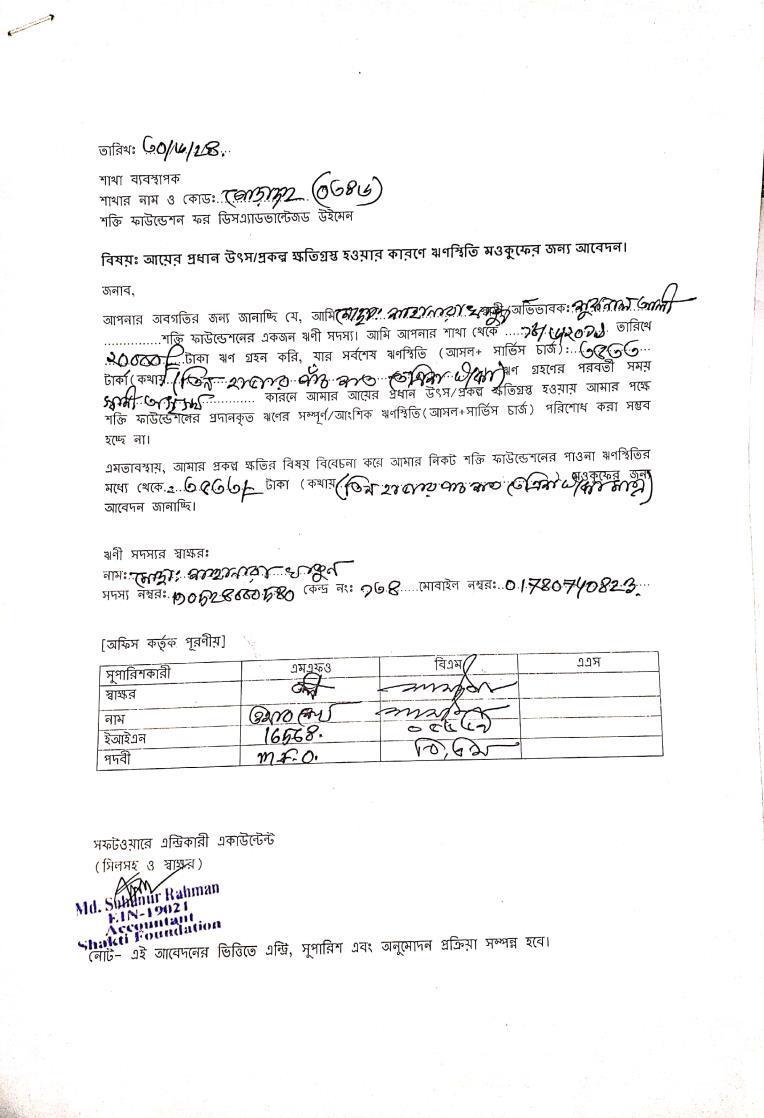 তারিখঃ ৩০/৬/২৪.
শাখা ব্যবস্থাপক
শাখার নাম ও কোডঃ (০৩৪৬)
শক্তি ফাউন্ডেশন ফর ডিসএ্যাডভান্টেজড উইমেন
বিষয়ঃ আয়ের প্রধান উৎস/প্রকল্প ক্ষতিগ্রস্থ হওয়ার কারণে ঋণস্থিতি মওকুফের জন্য আবেদন।
জনাব,
আপনার অবগতির জন্য জানাচ্ছি যে, আমি মোছাঃ শাহানারা খাতুন অভিভাবকঃ আলী
শক্তি ফাউন্ডেশনের একজন ঋণী সদস্য। আমি আপনার শাখা থেকে তারিখে
২০০০০/= টাকা ঋণ গ্রহন করি, যার সর্বশেষ ঋণস্থিতি (আসল+ সার্ভিস চার্জ)ঃ ৩৫৩৩
টাকা (কথায় (তিন হাজার পাঁচ শত তেত্রিশ টাকা) ঋণ গ্রহণের পরবর্তী সময়
স্বামী অসুস্থ কারনে আমার আয়ের প্রধান উৎস/প্রকল্প ক্ষতিগ্রস্থ হওয়ায় আমার পক্ষে
শক্তি ফাউন্ডেশনের প্রদানকৃত ঋণের সম্পূর্ণ/আংশিক ঋণস্থিতি(আসল+সার্ভিস চার্জ) পরিশোধ করা সম্ভব
হচ্ছে না।
এমতাবস্থায়, আমার প্রকল্প ক্ষতির বিষয় বিবেচনা করে আমার নিকট শক্তি ফাউন্ডেশনের পাওনা ঋণস্থিতির
মধ্যে থেকে ৩৫৩৩/= টাকা (কথায় (তিন হাজার পাঁচ শত তেত্রিশ টাকা মাত্র) মওকুফের জন্য
আবেদন জানাচ্ছি।
ঋণী সদস্যের স্বাক্ষরঃ
নামঃ মোছাঃ শাহানারা খাতুন
সদস্য নম্বরঃ কেন্দ্র নংঃ ১৬৪ মোবাইল নম্বরঃ 01780740823
[অফিস কর্তৃক পূরণীয়]
সুপারিশকারী এমএফও বিএম এএস
স্বাক্ষর
নাম
ইআইএন 16568.
পদবী M.F.O. বি,এম
সফটওয়ারে এন্ট্রিকারী একাউন্টেন্ট
(সিলসহ ও স্বাক্ষর)
Md. Sohanur Rahman
EIN-19021
Accountant
Shakti Foundation
নোট- এই আবেদনের ভিত্তিতে এন্ট্রি, সুপারিশ এবং অনুমোদন প্রক্রিয়া সম্পন্ন হবে।